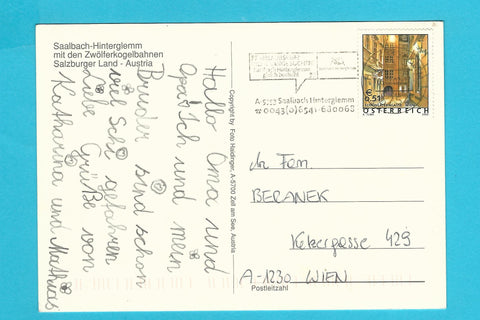 Saalbach-Hinterglemm
mit den Zwölferkogelbahnen
Salzburger Land - Austria
Hallo Oma und
Opa! Ich und mein
Bruder sind schon
viel Schi gefahren
Liebe Grüße von
Katharina und Mathias
Copyright by Foto Haidinger, A-5700 Zell am See, Austria
A-5753 Saalbach Hinterglemm
☎ 0043(0)6541-680068
€ 0,51
ÖSTERREICH
An Fam.
BERANEK
Ketzergasse 429
A-1230 WIEN
Postleitzahl